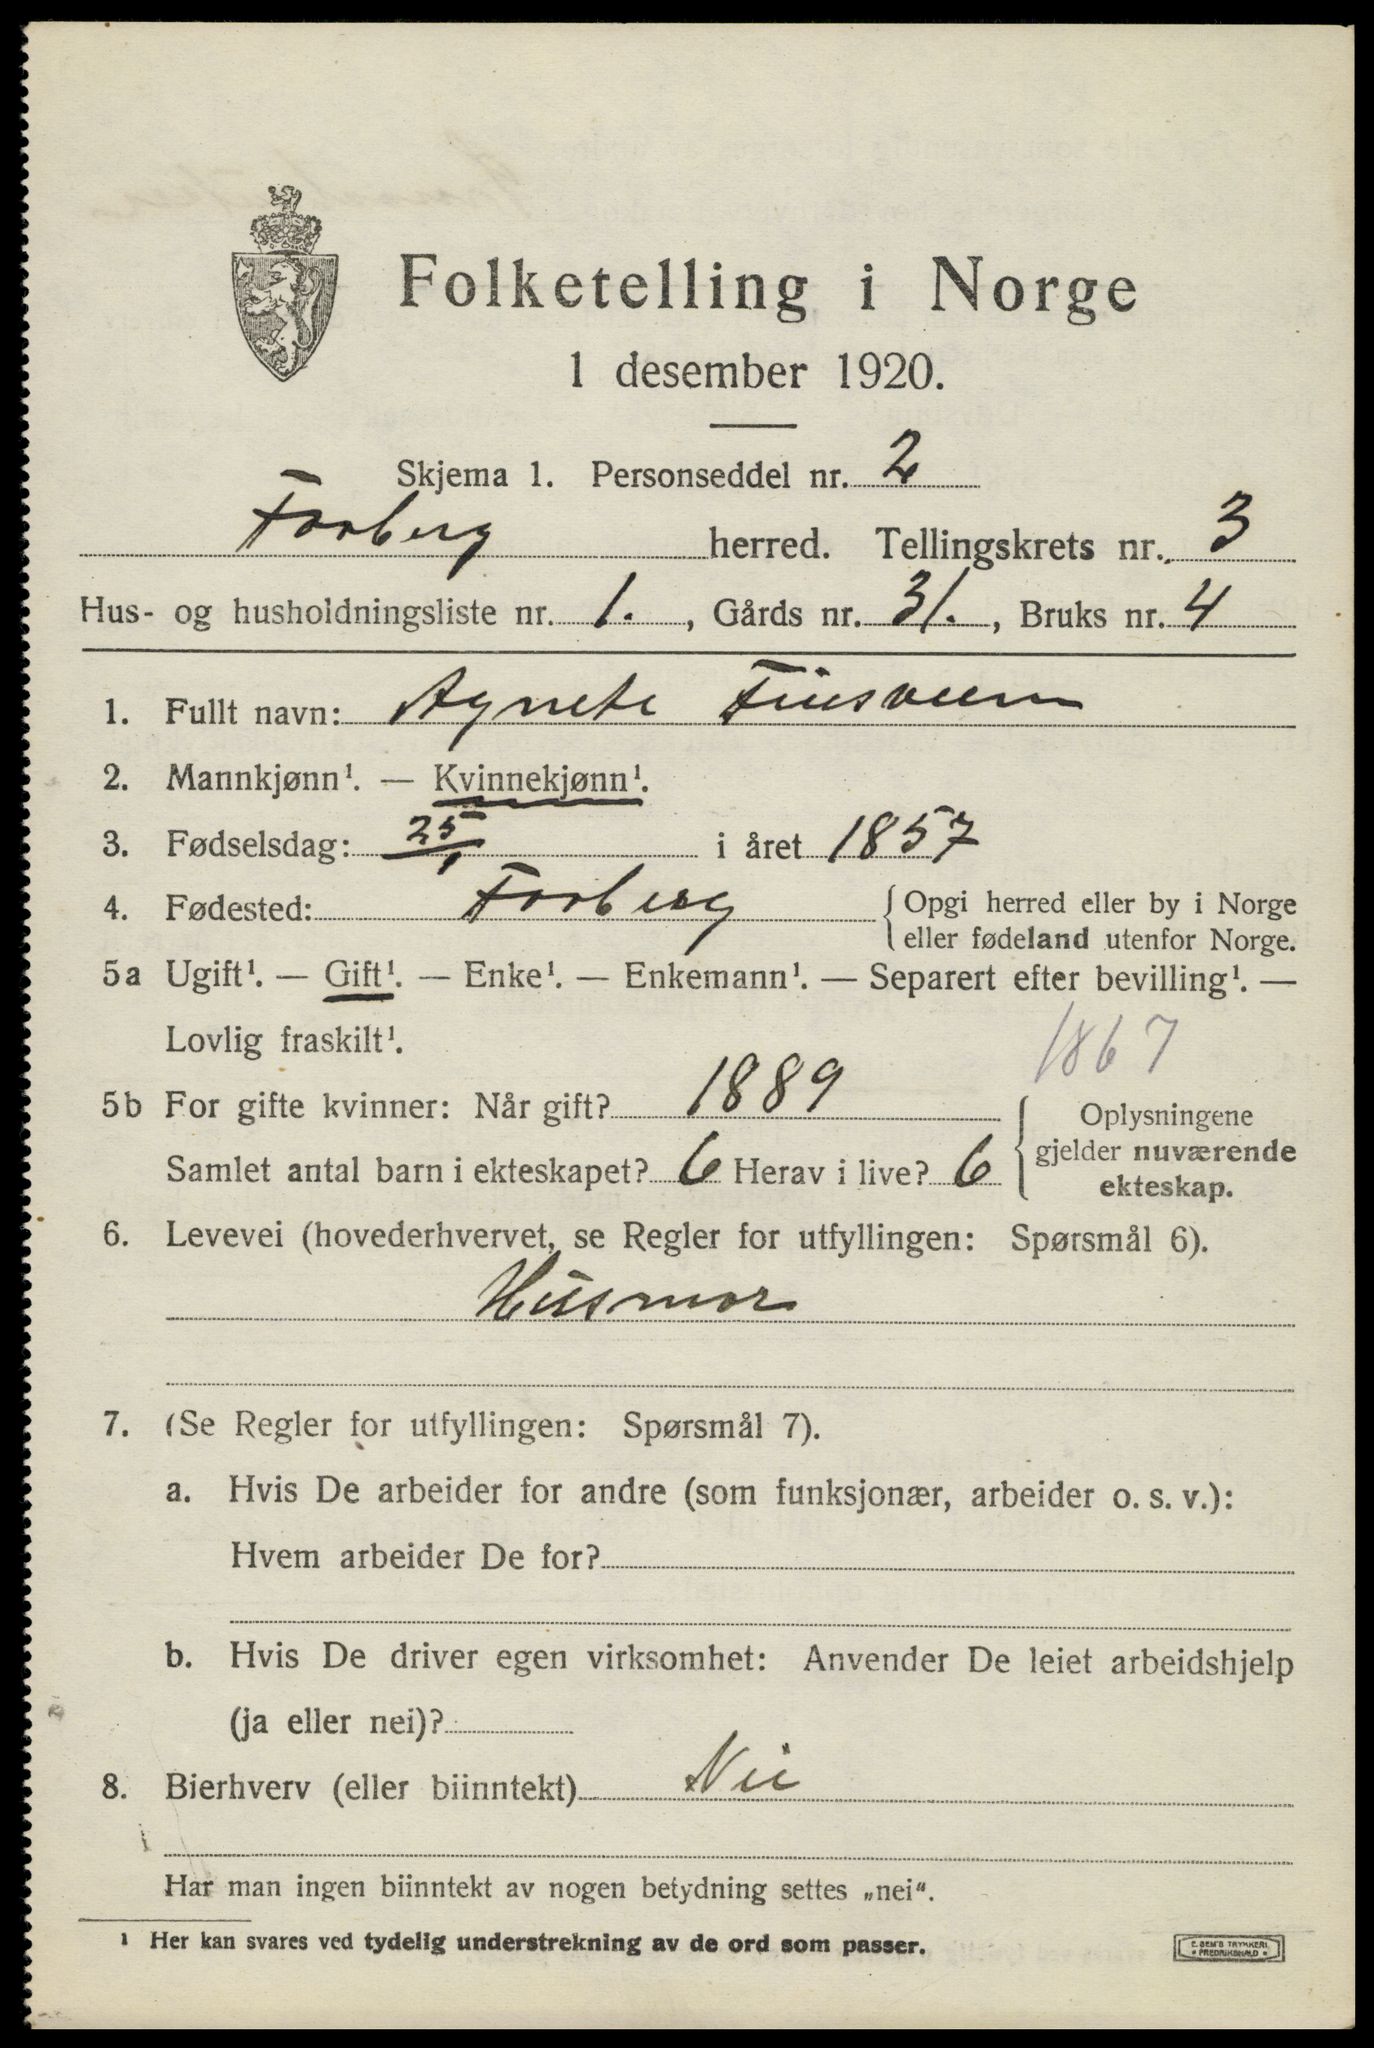 Folketelling i Norge
1 desember 1920.
Skjema 1. Personseddel nr. 2
Faaberg herred. Tellingskrets nr. 3
Hus- og husholdningsliste nr. 1. , Gårds nr. 31. , Bruks nr. 4
1. Fullt navn: Agnete
2. Mannkjønn¹. — Kvinnekjønn¹.
3. Fødselsdag: 25/1 i året 1857
4. Fødested: Faaberg { Opgi herred eller by i Norge
eller fødeland utenfor Norge.
5a Ugift¹. — Gift¹. — Enke¹. — Enkemann¹. — Separert efter bevilling¹. —
Lovlig fraskilt¹.
1867
5b For gifte kvinner: Når gift? 1889
Samlet antal barn i ekteskapet? 6 Herav i live? 6
{ Oplysningene
gjelder nuværende
ekteskap.
6. Levevei (hovederhvervet, se Regler for utfyllingen: Spørsmål 6).
Husmor
7. (Se Regler for utfyllingen: Spørsmål 7).
a. Hvis De arbeider for andre (som funksjonær, arbeider o. s. v.):
Hvem arbeider De for?
b. Hvis De driver egen virksomhet: Anvender De leiet arbeidshjelp
(ja eller nei)?
8. Bierhverv (eller biinntekt) Nei
Har man ingen biinntekt av nogen betydning settes „nei".
¹ Her kan svares ved tydelig understrekning av de ord som passer.
E. SEM'S TRYKKERI
FREDRIKSHALD